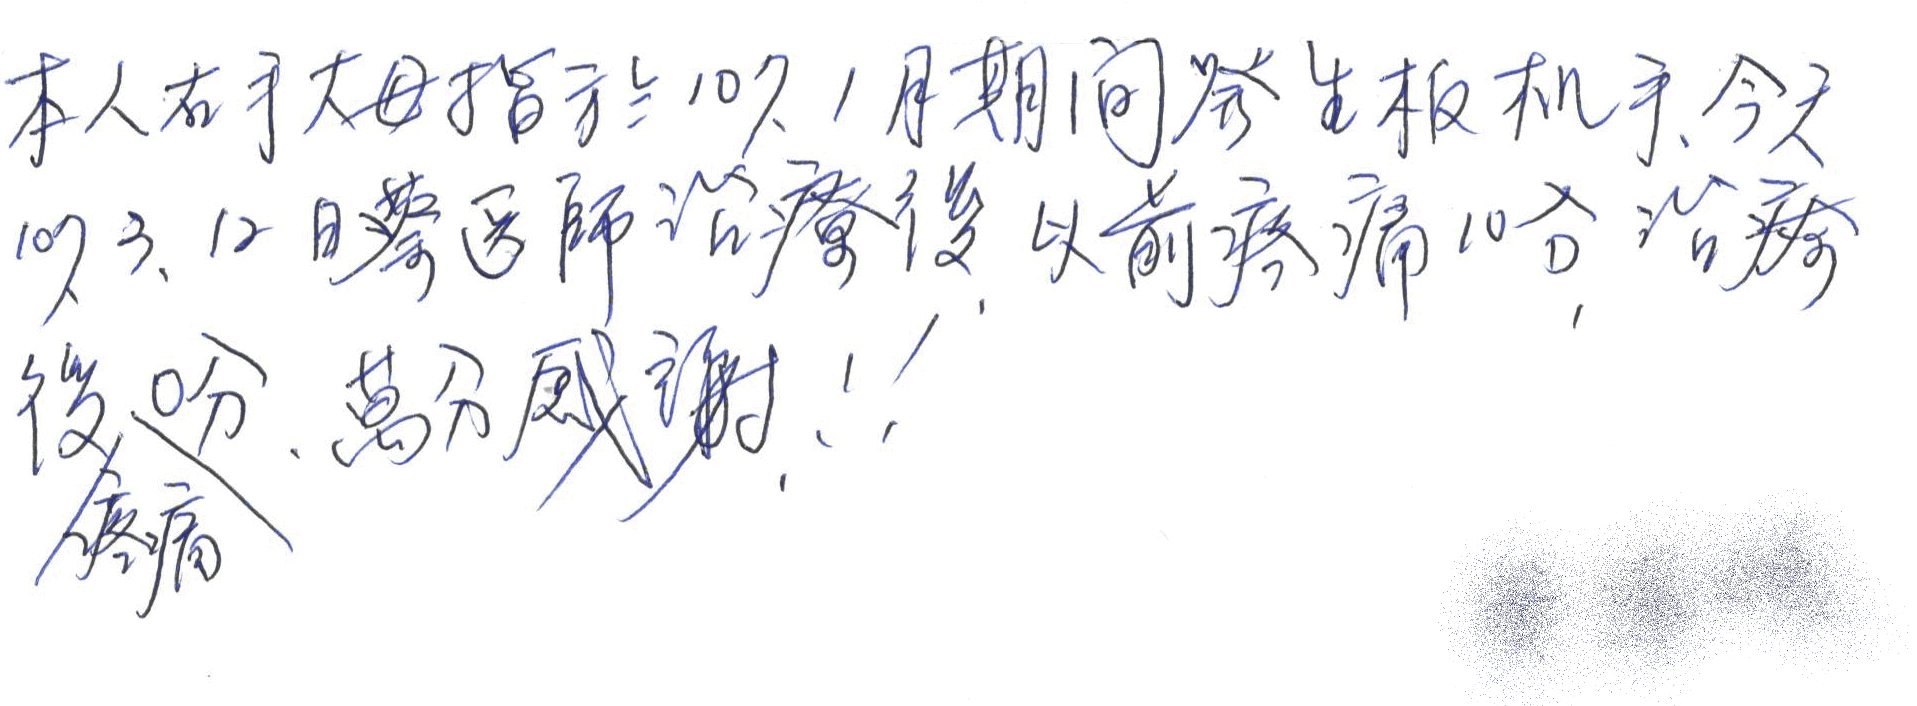 本人右手大母指於107.1月期间発生板机手、今天
107.3.12日蔡医師治療後，以前疼痛10分，治療
後疼痛0分、萬分感謝，!!